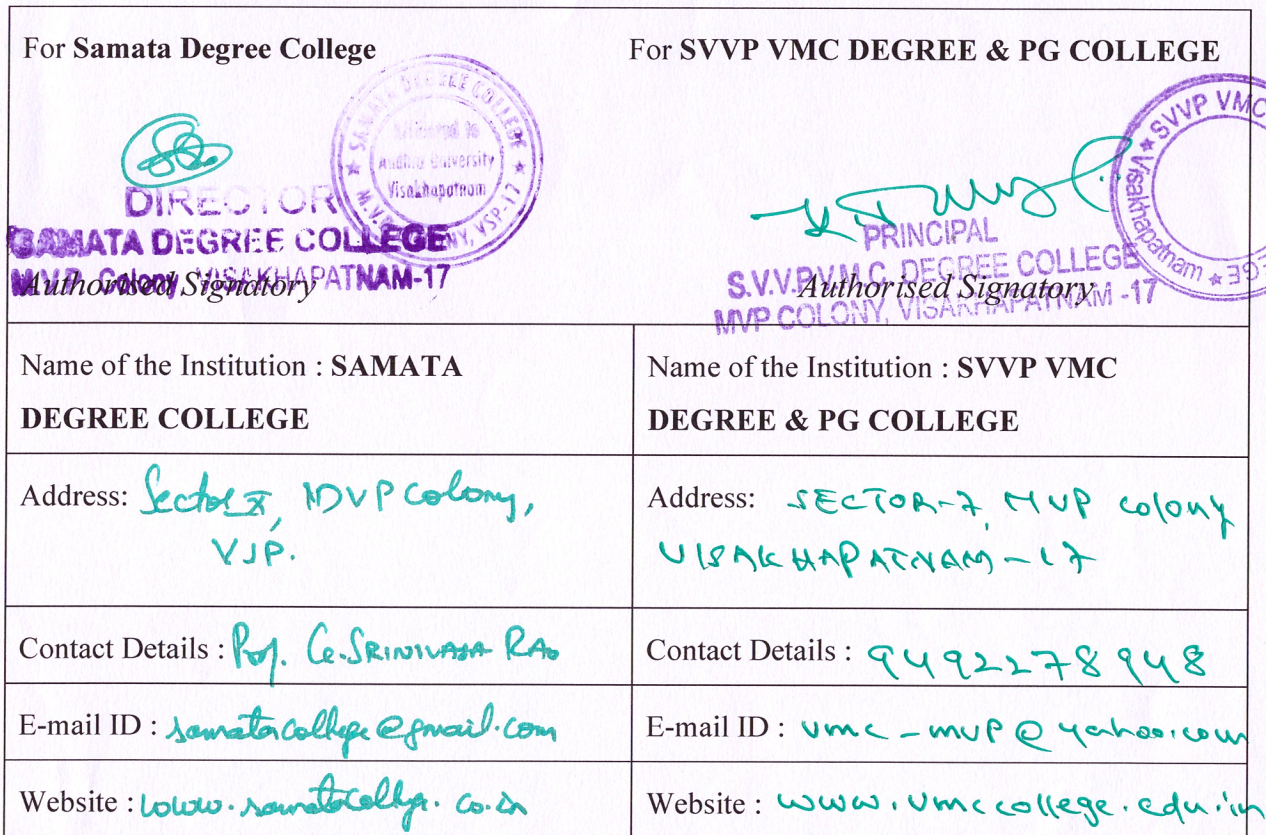 For Samata Degree College
SAMATA DEGREE COLLEGE
Affiliated to
Andhra University
Visakhapatnam
M.V.P. COLONY, VSP-17
DIRECTOR
SAMATA DEGREE COLLEGE
M.V.P. Colony, VISAKHAPATNAM-17
Authorised Signatory
For SVVP VMC DEGREE & PG COLLEGE
SVVP VMC
Visakhapatnam
PRINCIPAL
S.V.V.P.V.M.C. DEGREE COLLEGE
MVP COLONY, VISAKHAPATNAM -17
Authorised Signatory
Name of the Institution : SAMATA
DEGREE COLLEGE
Name of the Institution : SVVP VMC
DEGREE & PG COLLEGE
Address: Sector, MVP Colony,
VSP.
Address: SECTOR-7, MVP colony
VISAKHAPATNAM-17
Contact Details : Prof. SRINIVASA RAO
Contact Details : 9492278948
E-mail ID : samatacollege@gmail.com
E-mail ID : vmc-mvp@yahoo.com
Website : www.samatacollege.co.in
Website : www.vmccollege.edu.in